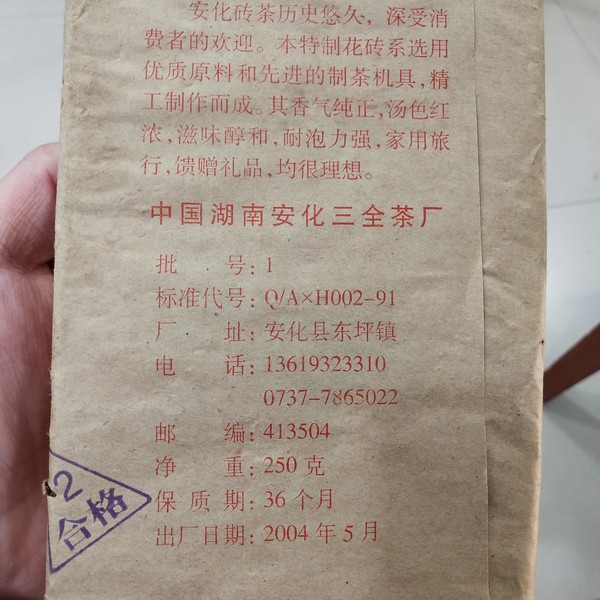 安化砖茶历史悠久，深受消
费者的欢迎。本特制花砖系选用
优质原料和先进的制茶机具，精
工制作而成。其香气纯正，汤色红
浓，滋味醇和，耐泡力强，家用旅
行，馈赠礼品，均很理想。
中国湖南安化三全茶厂
批号：1
标准代号：Q/A×H002-91
厂址：安化县东坪镇
电话：13619323310
0737-7865022
邮编：413504
净重：250克
保质期：36个月
出厂日期：2004年5月
2
合格